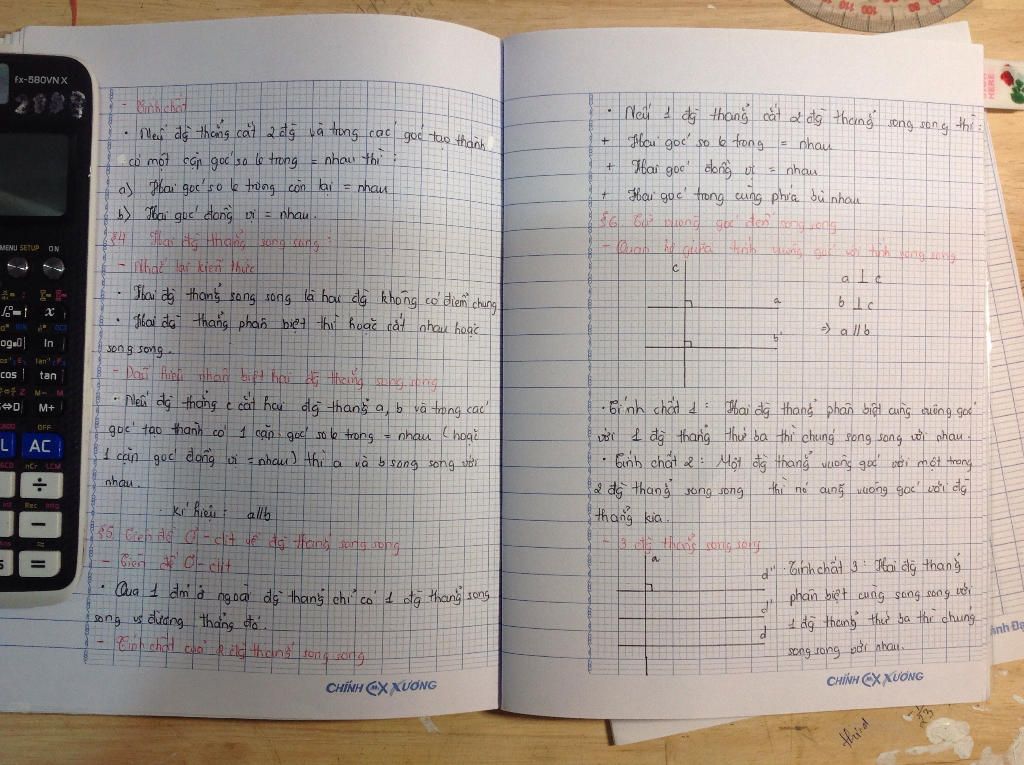 - Tính chất
• Nếu đg̃ thẳng cắt 2 đg̃ và trong các góc tạo thành
có một cặp góc so le trong = nhau thì:
a) Hai góc so le trong còn lại = nhau
b) Hai góc đồng vị = nhau.
§4 Hai đg̃ thẳng song song:
- Nhắc lại kiến thức
• Hai đg̃ thẳng song song là hai đg̃ không có điểm chung
• Hai đg̃ thẳng phân biệt thì hoặc cắt nhau hoặc
song song.
- Dấu hiệu nhận biết hai đg̃ thẳng song song
• Nếu đg̃ thẳng c cắt hai đg̃ thẳng a, b và trong các
góc tạo thành có 1 cặp góc so le trong = nhau (hoặc
1 cặp góc đồng vị = nhau) thì a và b song song với
nhau.
. Kí hiệu: a//b
§5 Tiên đề Ơ-clit về đg̃ thẳng song song
- Tiên đề Ơ-clit
• Qua 1 điểm ở ngoài đg̃ thẳng chỉ có 1 đg̃ thẳng song
song vs đường thẳng đó.
- Tính chất của 2 đg̃ thẳng song song
CHÍNH XƯƠNG
• Nếu 1 đg̃ thẳng cắt 2 đg̃ thẳng song song thì:
+ Hai góc so le trong = nhau
+ Hai góc đồng vị = nhau
+ Hai góc trong cùng phía bù nhau
§6 Từ vuông góc đến song song
- Quan hệ giữa tính vuông góc với tính song song
c
a
b
a ⊥ c
b ⊥ c
=> a//b
• Tính chất 1: Hai đg̃ thẳng phân biệt cùng vuông góc
với 1 đg̃ thẳng thứ ba thì chúng song song với nhau.
• Tính chất 2: Một đg̃ thẳng vuông góc với một trong
2 đg̃ thẳng song song thì nó cũng vuông góc với đg̃
thẳng kia.
- 3 đg̃ thẳng song song
a
d"
d'
d
• Tính chất 3: Hai đg̃ thẳng
phân biệt cùng song song với
1 đg̃ thẳng thứ ba thì chúng
song song với nhau.
CHÍNH XƯƠNG
fx-580VN X
MENU SETUP ON
x
ln
cos tan
M+
AC
÷
−
=
HERE